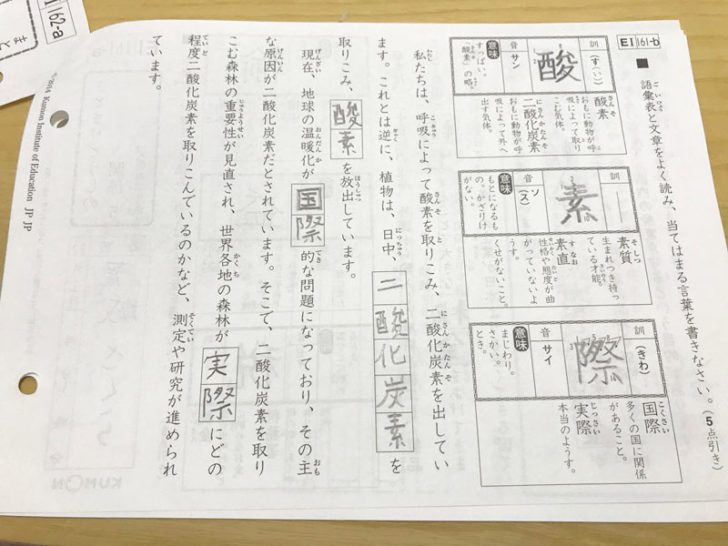 EI 161-b
■ 語彙表と文章をよく読み、当てはまる言葉を書きなさい。(5点引き)
訓 (す(い))
酸
音 サン
意味 すっぱい。「酸素」の略。
酸素 おもに動物が呼吸によって取りこむ気体。
二酸化炭素 おもに動物が呼吸によって外へ出す気体。
訓 ―
素
音 ソ (ス)
意味 もとになるもの。かざりけがない。
素質 生まれつき持っている才能。
素直 性格や態度が曲がっていないようす。くせがないこと。
訓 (きわ)
際
音 サイ
意味 まじわり。さかい。とき。
国際 多くの国に関係があること。
実際 本当のようす。
私たちは、呼吸によって酸素を取りこみ、二酸化炭素を出してい
ます。これとは逆に、植物は、日中、二酸化炭素を
取りこみ、酸素を放出しています。
現在、地球の温暖化が国際的な問題になっており、その主
な原因が二酸化炭素だとされています。そこで、二酸化炭素を取り
こむ森林の重要性が見直され、世界各地の森林が実際にどの
程度二酸化炭素を取りこんでいるのかなど、測定や研究が進められ
ています。
Kumon Institute of Education JP JP
162-a
まと
KUMON